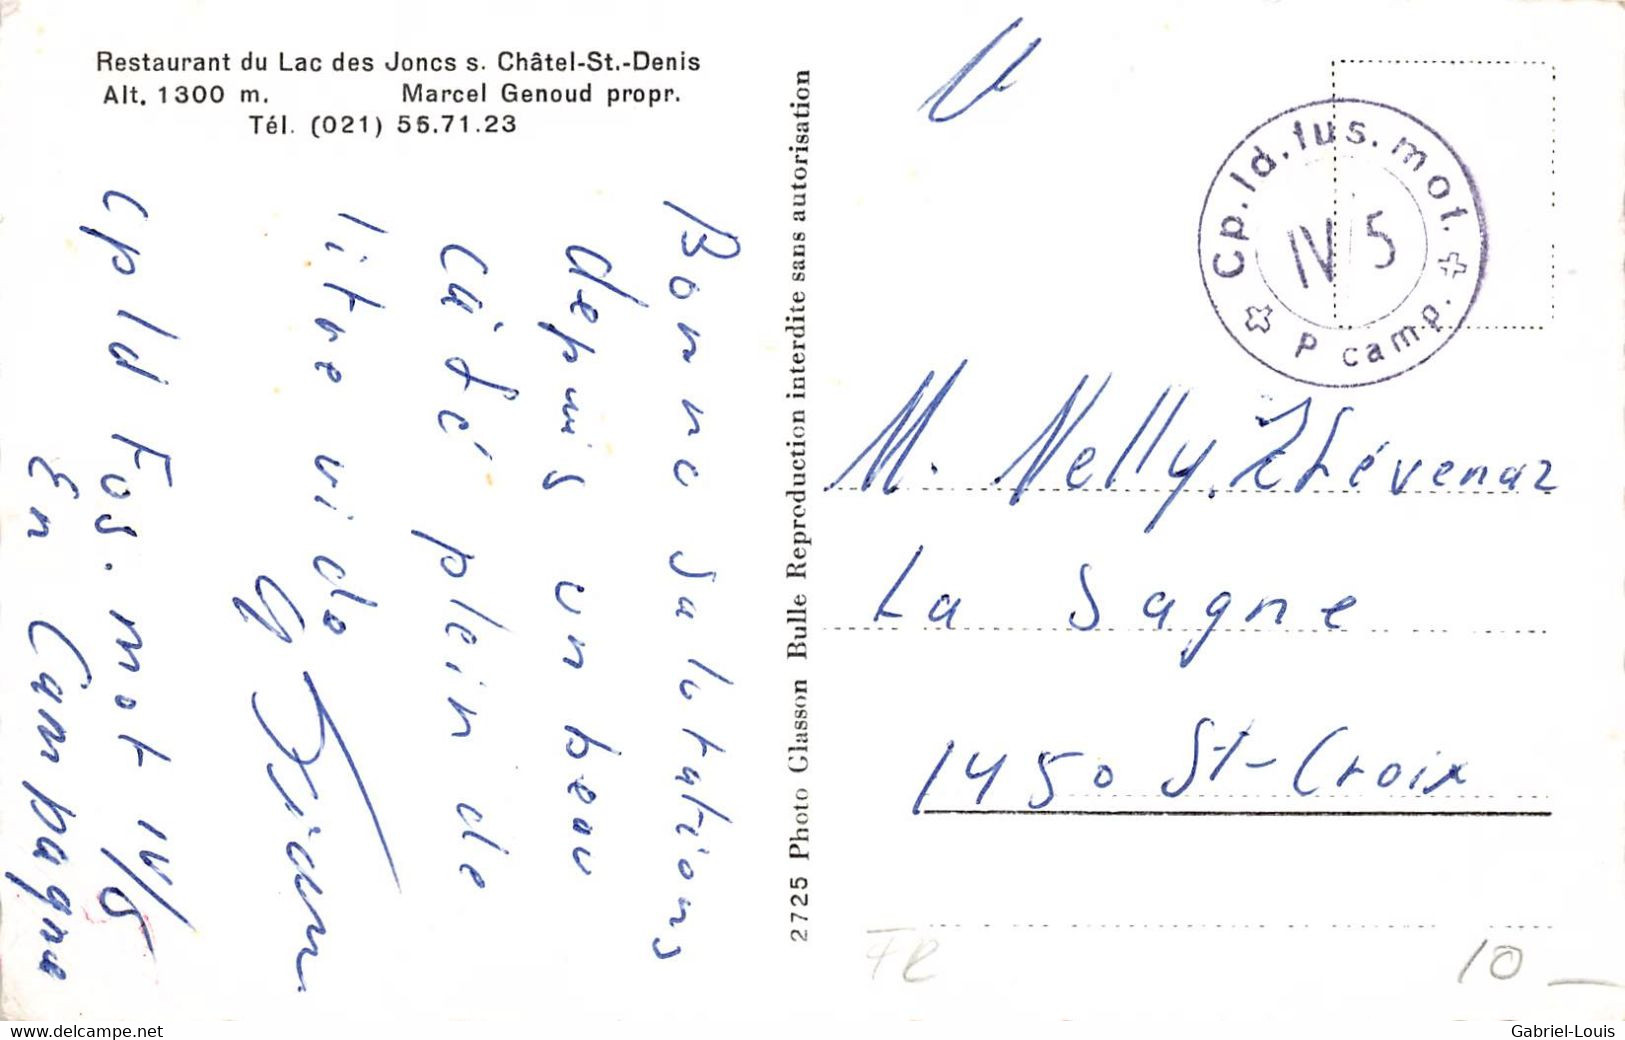 Restaurant du Lac des Joncs s. Châtel-St.-Denis
Alt. 1300 m. Marcel Genoud propr.
Tél. (021) 56.71.23
Bonne salutations
depuis un beau
Café plein de
litre vide
Cp ld Fus. mot IV/5
En Campagne
2725 Photo Glasson Bulle Reproduction interdite sans autorisation
Cp. ld. fus. mot.
IV 5
P camp.
M. Nelly Thévenaz
La Sagne
1450 St-Croix
FR
10
www.delcampe.net
Gabriel-Louis